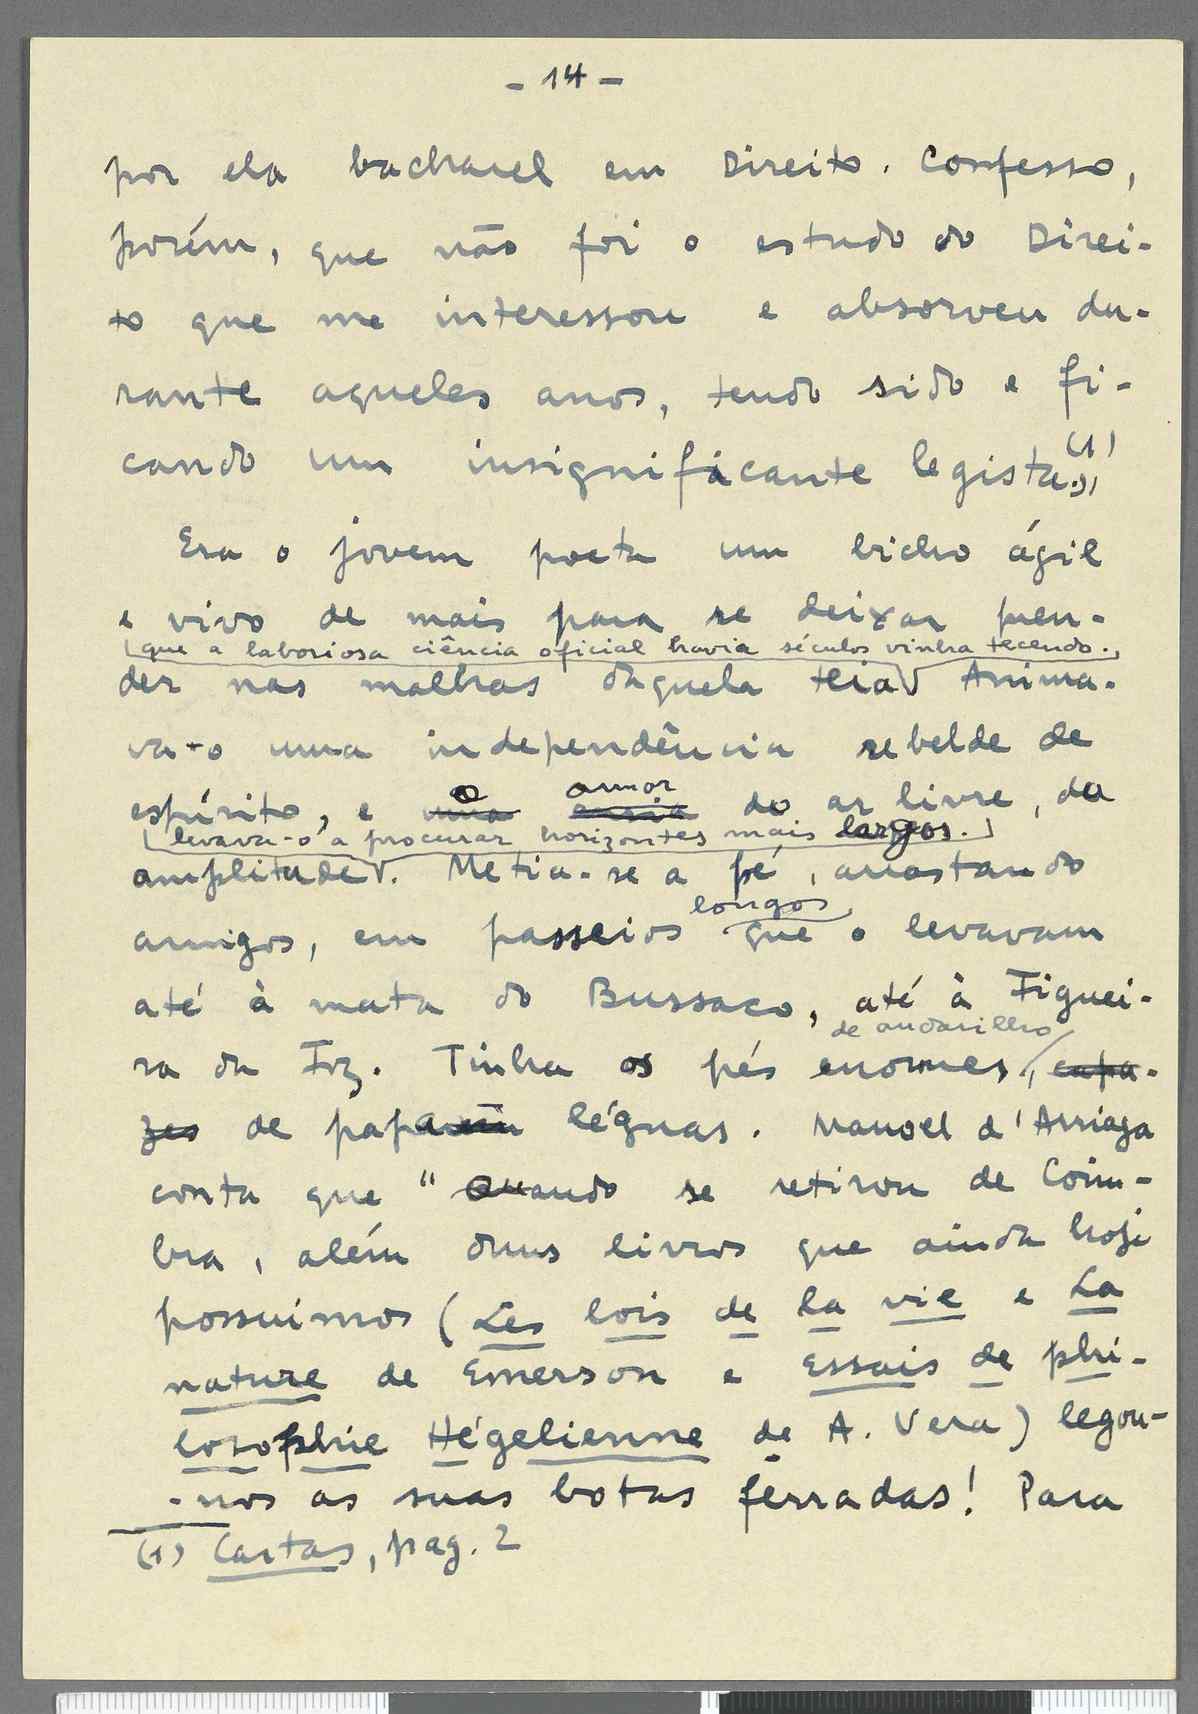 - 14 -
por ela bacharel em Direito. Confesso,
porém, que não foi o estudo do Direi-
to que me interessou e absorveu du-
rante aqueles anos, tendo sido e fi-
cando um insignificante legista.» (1)
Era o jovem poeta um bicho ágil
e vivo de mais para se deixar pren-
que a laboriosa ciência oficial havia séculos vinha tecendo.
der nas malhas daquela teia. Anima-
va-o uma independência rebelde de
o amor
espírito, e uma ansia do ar livre, da
levava-o a procurar horizontes mais largos.
amplitude. Metia-se a pé, arrastando
longos
amigos, em passeios que o levavam
até à mata do Bussaco, até à Figuei-
de andarilho
ra da Foz. Tinha os pés enormes, capa-
zes de papar léguas. Manoel d'Arriaga
conta que "Quando se retirou de Coim-
bra, além duns livros que ainda hoje
possuimos (Les lois de la vie e La
nature de Emerson e Essais de phi-
losophie Hégelienne de A. Vera) legou-
-nos as suas botas ferradas! Para
(1) Cartas, pag. 2